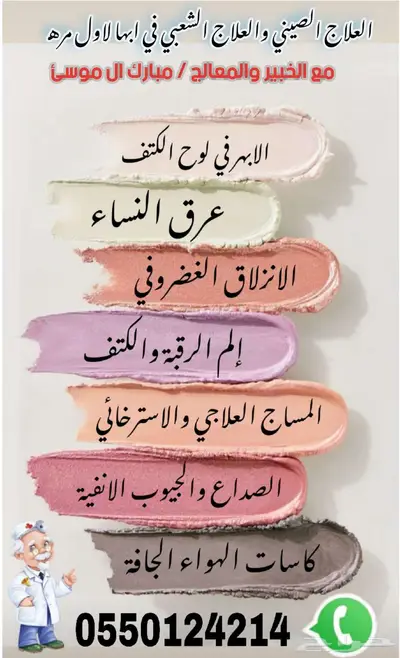 العلاج الصيني والعلاج الشعبي في ابها لاول مره
مع الخبير والمعالج / مبارك ال موسئ
الابهر في لوح الكتف
عرق النساء
الانزلاق الغضروفي
إلم الرقبة والكتف
المساج العلاجي والاسترخائي
الصداع والجيوب الانفية
كاسات الهواء الجافة
0550124214